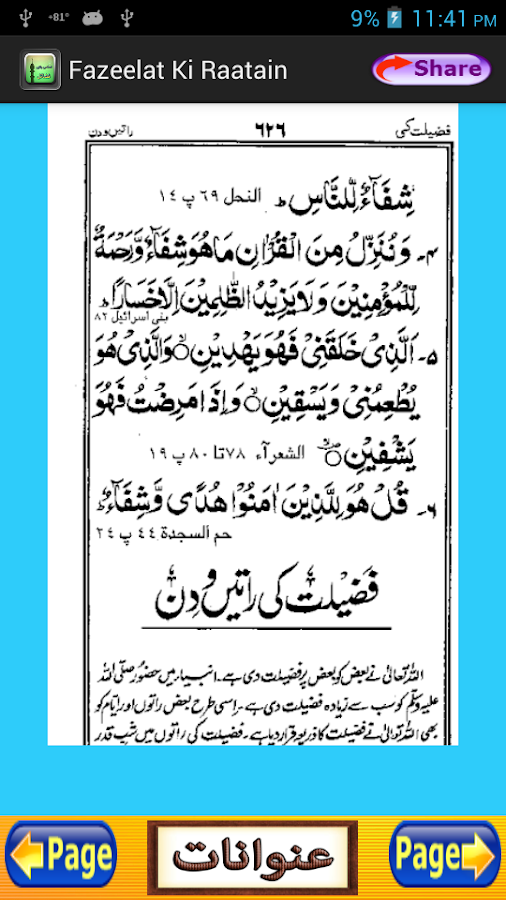 +81° 9% 11:41 PM
Fazeelat Ki Raatain Share
فضیلت کی ۶۲۶ راتیں و دن
شِفَآءٌ لِّلنَّاسِ ط النحل ۶۹ پ ۱۴
۴۔ وَنُنَزِّلُ مِنَ الْقُرْاٰنِ مَا هُوَ شِفَآءٌ وَّرَحْمَةٌ
لِّلْمُؤْمِنِيْنَ وَلَا يَزِيْدُ الظّٰلِمِيْنَ اِلَّا خَسَارًا ط
بنی اسرائیل ۸۲
۵۔ اَلَّذِیْ خَلَقَنِیْ فَهُوَ يَهْدِيْنِ ۝ وَالَّذِیْ هُوَ
يُطْعِمُنِیْ وَيَسْقِيْنِ ۝ وَاِذَا مَرِضْتُ فَهُوَ
يَشْفِيْنِ ۝ الشعرآء ۷۸ تا ۸۰ پ ۱۹
۶۔ قُلْ هُوَ لِلَّذِيْنَ اٰمَنُوْا هُدًی وَّشِفَآءٌ ط
حم السجدة ۴۴ پ ۲۴
فضیلت کی راتیں و دن
اللہ تعالیٰ نے بعض کو بعض پر فضیلت دی ہے۔ انبیار میں حضور صلی اللہ
علیہ وسلم کو سب سے زیادہ فضیلت دی ہے۔ اِسی طرح بعض راتوں اور ایّام کو
بھی اللہ تعالیٰ نے فضیلت کا ذریعہ قرار دیا ہے۔ فضیلت کی راتوں میں شبِ قدر
Page عنوانات Page